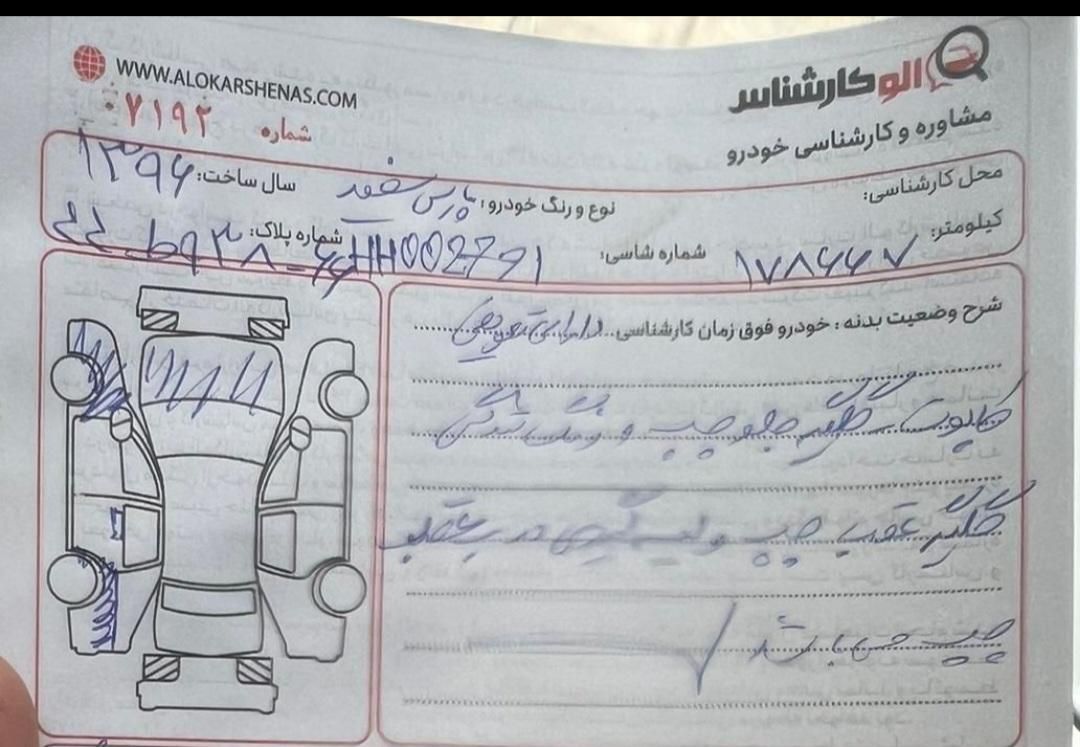 WWW.ALOKARSHENAS.COM
الو کارشناس
مشاوره و کارشناسی خودرو
شماره ۰۷۱۹۲
محل کارشناسی:
نوع و رنگ خودرو: پارس سفید
سال ساخت: ۱۳۹۶
کیلومتر: ۱۷۸۶۶۷
شماره شاسی: HH002791
شماره پلاک:
شرح وضعیت بدنه: خودرو فوق زمان کارشناسی دارای تعویض
کاپوت - گلگیر جلو چپ و رنگ شدگی
گلگیر عقب چپ و لیسه گیری درب عقب
چپ می باشد